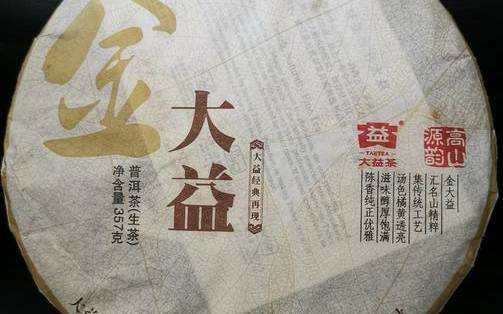 金
大益
大益经典再现
普洱茶(生茶)
净含量357克
益
TAETEA
大益茶
高山
源韵
金大益
汇名山精粹
集传统工艺
汤色橘黄透亮
滋味醇厚饱满
陈香纯正优雅